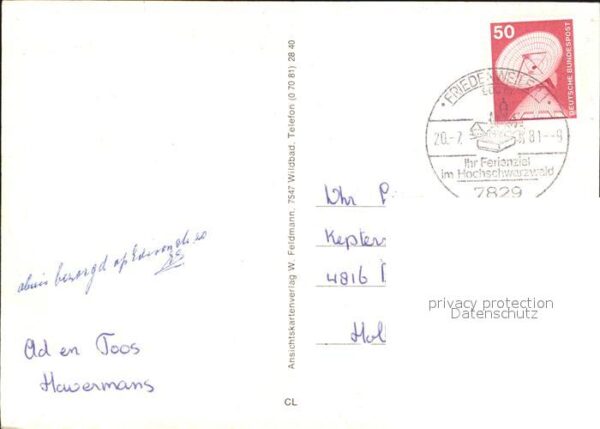 50
DEUTSCHE BUNDESPOST
FRIEDENWEILER
20.-7. 81--9
Ihr Ferienziel
im Hochschwarzwald
7829
Ansichtskartenverlag W. Feldmann, 7547 Wildbad, Telefon (0 70 81) 28 40
abuis bezorgd op
Ad en Toos
Hawermans
4816
Hol
privacy protection
Datenschutz
CL